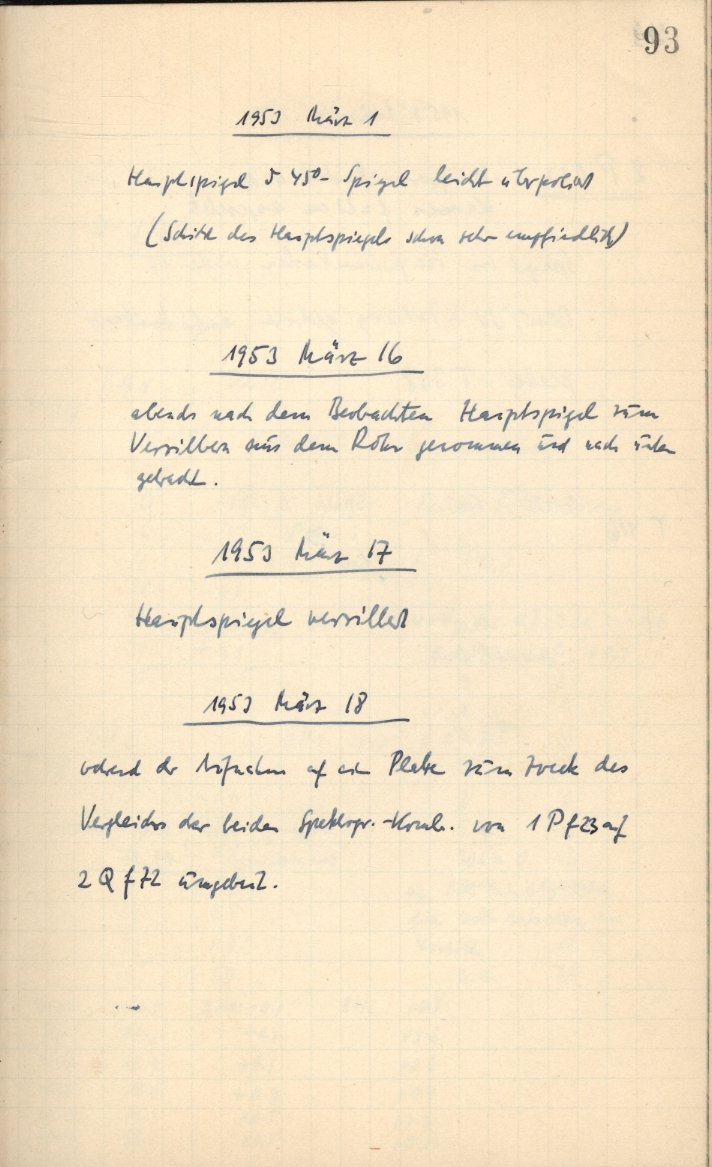 93
1953 März 1
Hauptspiegel & 45°- Spiegel leicht überpoliert
(Schicht des Hauptspiegels schon sehr empfindlich)
1953 März 16
abends nach dem Beobachten Hauptspiegel zum
Versilbern aus dem Rohr genommen und nach unten
gebracht.
1953 März 17
Hauptspiegel versilbert
1953 März 18
während der Aufnahme auf ein Platte zum Zweck des
Vergleiches der beiden Spektrogr.-Komb. von 1 P f 23 auf
2 Q f 72 umgebaut.